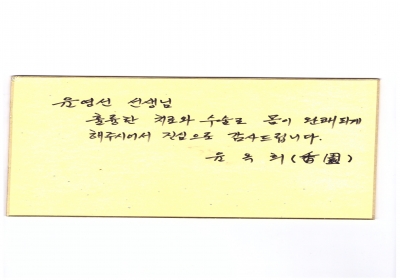 윤영선 선생님
훌륭한 치료와 수술로 몸이 완쾌되게
해주시어서 진심으로 감사드립니다.
윤옥희(香園)